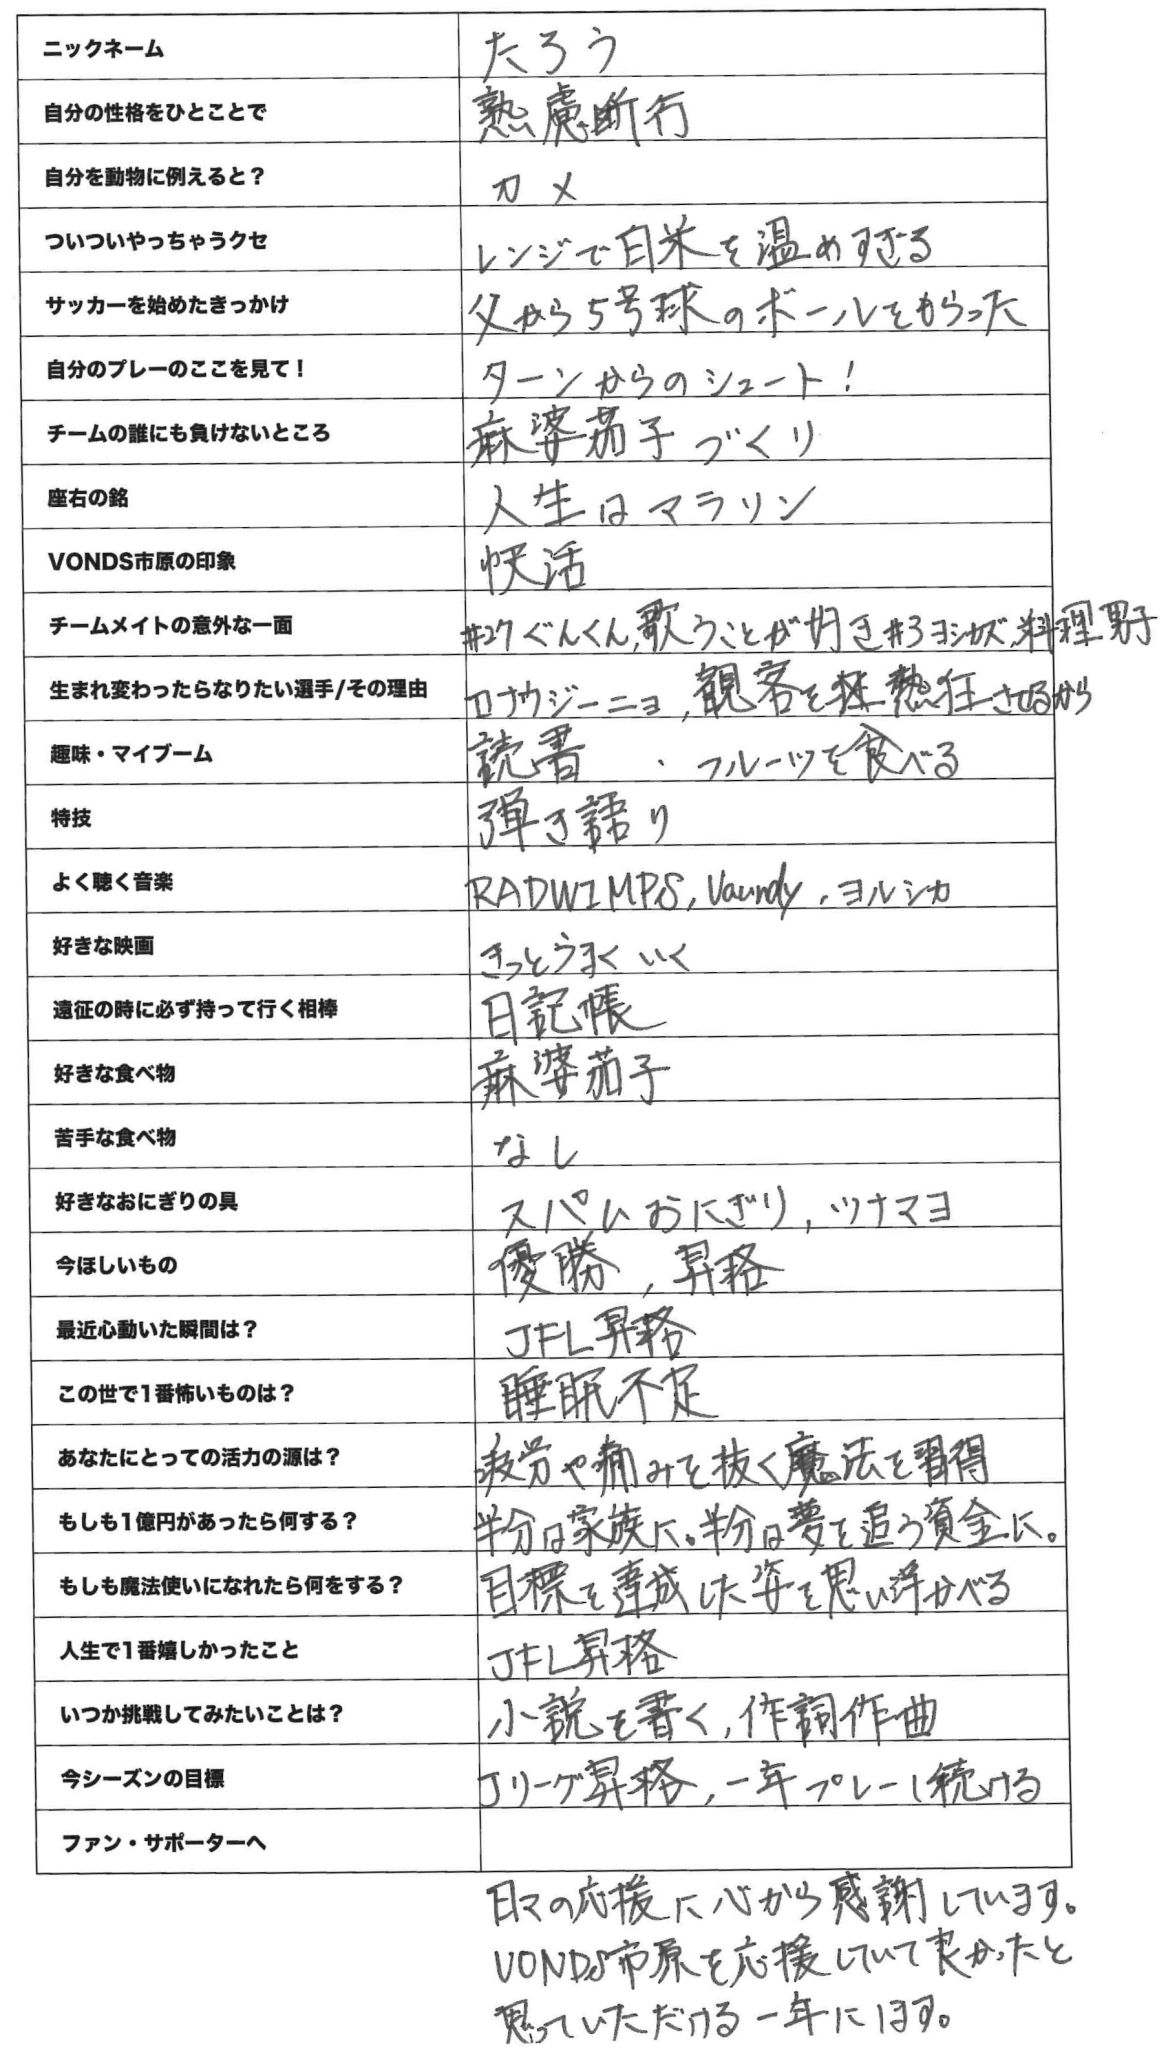 ニックネーム たろう
自分の性格をひとことで 熟慮断行
自分を動物に例えると? カメ
ついついやっちゃうクセ レンジで白米を温めすぎる
サッカーを始めたきっかけ 父から5号球のボールをもらった
自分のプレーのここを見て! ターンからのシュート!
チームの誰にも負けないところ 麻婆茄子づくり
座右の銘 人生はマラソン
VONDS市原の印象 快活
チームメイトの意外な一面 #27ぐんくん,歌うことが好き #3ヨシカズ,料理男子
生まれ変わったらなりたい選手/その理由 ロナウジーニョ,観客を熱狂させるから
趣味・マイブーム 読書 ・フルーツを食べる
特技 弾き語り
よく聴く音楽 RADWIMPS, Vaundy,ヨルシカ
好きな映画 きっとうまくいく
遠征の時に必ず持って行く相棒 日記帳
好きな食べ物 麻婆茄子
苦手な食べ物 なし
好きなおにぎりの具 スパムおにぎり,ツナマヨ
今ほしいもの 優勝,昇格
最近心動いた瞬間は? JFL昇格
この世で1番怖いものは? 睡眠不足
あなたにとっての活力の源は? 疲労や痛みを抜く魔法を習得
もしも1億円があったら何する? 半分は家族に。半分は夢を追う資金に。
もしも魔法使いになれたら何をする? 目標を達成した姿を思い浮かべる
人生で1番嬉しかったこと JFL昇格
いつか挑戦してみたいことは? 小説を書く,作詞作曲
今シーズンの目標 Jリーグ昇格,一年プレーし続ける
ファン・サポーターへ
日々の応援に心から感謝しています。
VONDS市原を応援していて良かったと
思っていただける一年にします。